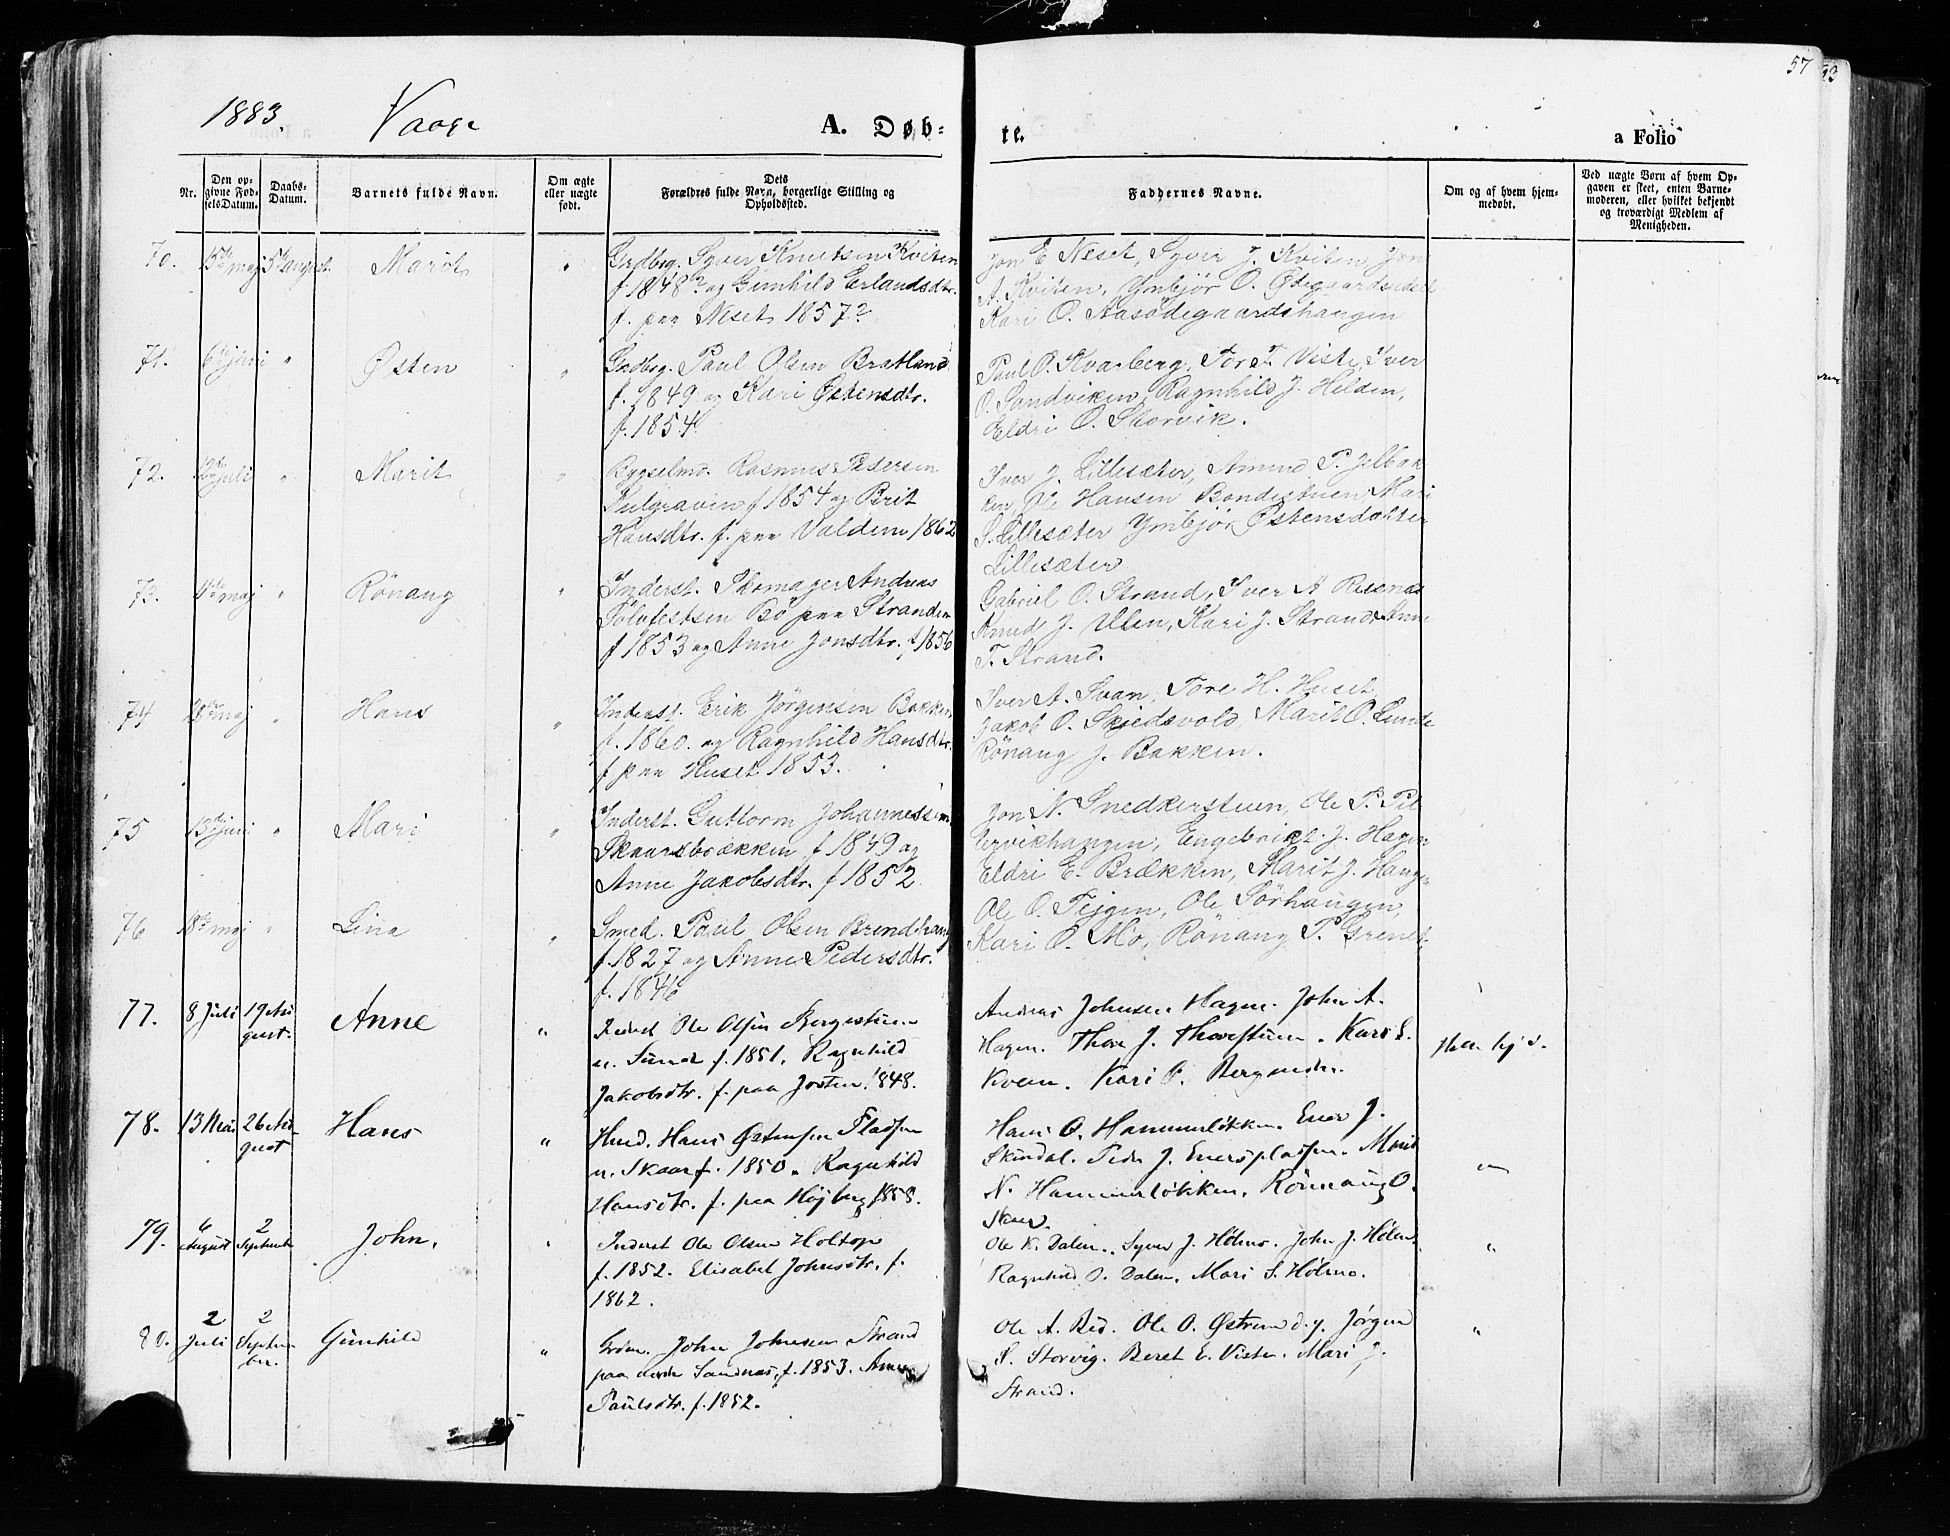 57
93
1883. Vaage A. Døb-
te. a Folio
Nr.
Den op-
givne Fød-
selsDatum.
Daabs-
Datum.
Barnets fulde Navn.
Om ægte
eller uægte
født.
Dets
Forældres fulde Navn, borgerlige Stilling og
Opholdssted.
Faddernes Navne.
Om og af hvem hjem-
medøbt.
Ved uægte Børn af hvem Op-
gaven er skeet, enten Barne-
moderen, eller hvilket bekjendt
og troværdigt Medlem af
Menigheden.
70. 15de maj 5te august. Marit " Grdbrg. Syver Knutsen Kviten
f 1848? og Gunhild Erlandsdtr.
f. paa Neset 1857?
Jon E Neset, Syver J. Kviten, Jon
A. Kviten, Ymbjør O. Ødegaard
Kari O. Aasødegaardshaugen
71. 6te juni " Østen " Grdbrg. Paul Olsen Bratland
f. 1849 og Kari Østensdtr.
f. 1854
Paul P. Kvarberg, Tor T. Viste, Iver
O. Sandviken, Ragnhild J. Helden,
Eldri O. Storvik.
72. 12te juli " Marit " Bygselmd. Rasmus Pedersen
Kulgraven f 1854 og Brit
Hansdtr. f. paa Valdem 1862
Iver J. Lillesæter, Amund P. Jelbak
ken, Ole Hansen Bondestuen Mari
S. Lillesæter Ymbjør Østensdatter
Lillesæter
73. 4de maj " Rönaug " Inderst. Skomager Andreas
Tolvfestsen Bö paa Stranden
f 1853 og Anne Jonsdtr. f 1856
Gabriel O. Strand, Iver A Risenæs
Knud J. Ulen, Kari J. Strand, Anne
T. Strand.
74 28de maj " Hans " Inderst. Erik Jörgensen Bakken
f. 1860. og Ragnhild Hansdtr.
f paa Huset 1853.
Iver A. Svan, Tore H. Huset
Jakob O. Skjedsvold, Marit O. Lunde
Rönaug J. Bakken.
75 13de juni " Mari " Inderst. Guttorm Johannessen
Skaarsbrækken f 1849 og
Anne Jakobsdtr. f 1852
Jon N. Snedkerstuen, Ole P. Pil
tervikhaugen, Engebrikt J. Hagen
Eldri E. Brækken, Marit J. Haug
76 18de maj " Lina " Smed. Paul Olsen Brendhaug
f. 1827 og Anne Pedersdtr.
f. 1846
Ole O. Tejgen, Ole Sörhaugen,
Kari O. Mo, Rönaug P. Grenet
77. 8 Juli 19 Au
gust. Anne " Inderst Ole Olsen Bergestuen
u. Sunde f. 1851. Ragnhild
Jakobsdtr. f. paa Josten 1848.
Andreas Johnsen Hagen. John A.
Hagen. Thore J. Thorestuen. Kari S.
Kvern. Kari O.
78. 13 Mai 26 Au
gust Hans " Husmd. Hans Østensen Pladsen
u. Skaar f. 1850. Ragnhild
Hansdtr. f. paa Højberg 1858.
Hans O. Hammerløkken. Ener J.
Skindal. Peder J. Enersplassen. Marit
N. Hammerløkken, Rönnaug O.
Skaar.
"
79. 6
August 2
September John. " Inderst Ole Olsen Holtop
f. 1852. Elisabet Johnsdtr. f.
1862.
Ole K. Dalen. Syver J. Hølmo. John J. Hølmo
Ragnhild O. Dalen. Mari S. Hølmo.
"
80. 2
Juli 2
Septem
ber. Gunhild " Grdm. John Johnsen Strand
paa nordre Sandnæs, f. 1853. Anne
Paulsdtr. f. 1852.
Ole A. Bid. Ole O. Østrem d.y. Jørgen
S. Storvig. Beret E. Viste. Mari J.
Strand.
"